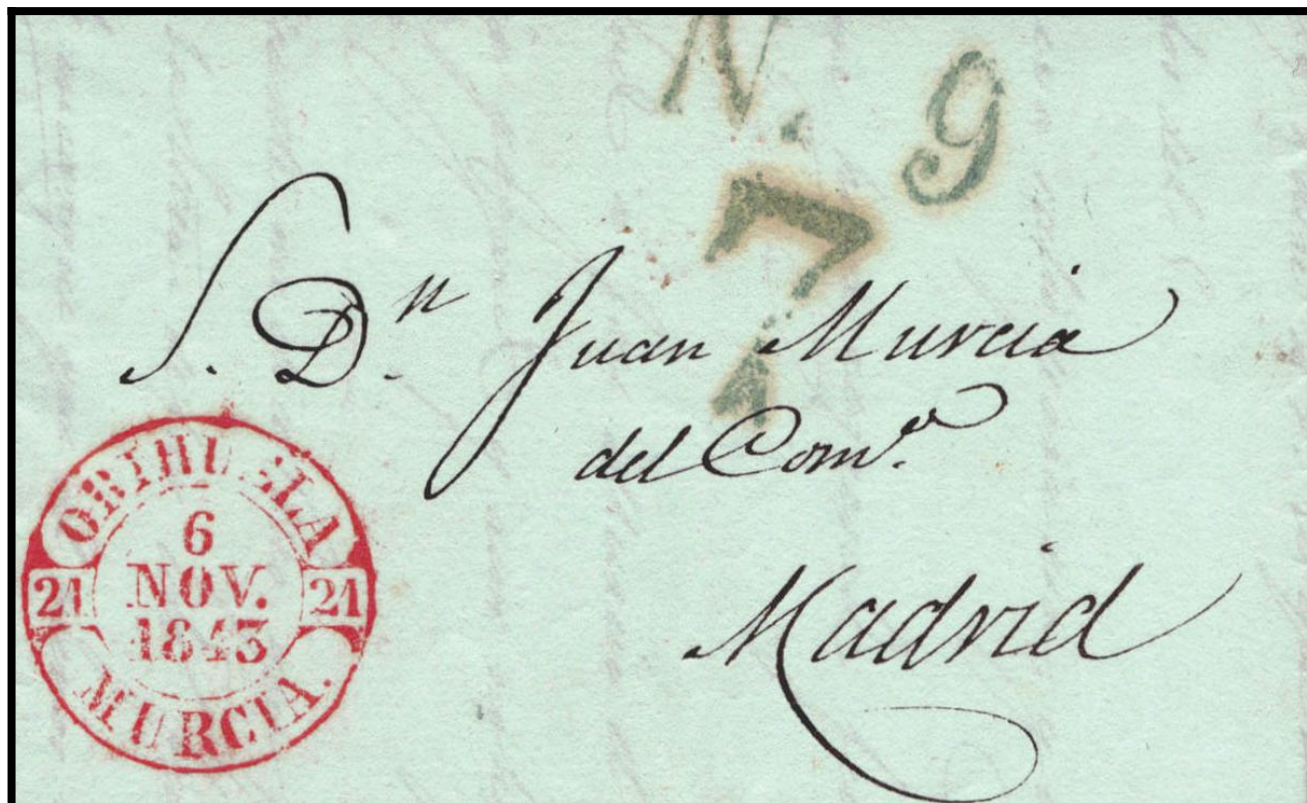 N. 9
7
S. Dⁿ. Juan Murcia
del Comº.
Madrid
ORIHUELA
21 6 21
NOV.
1843
MURCIA.